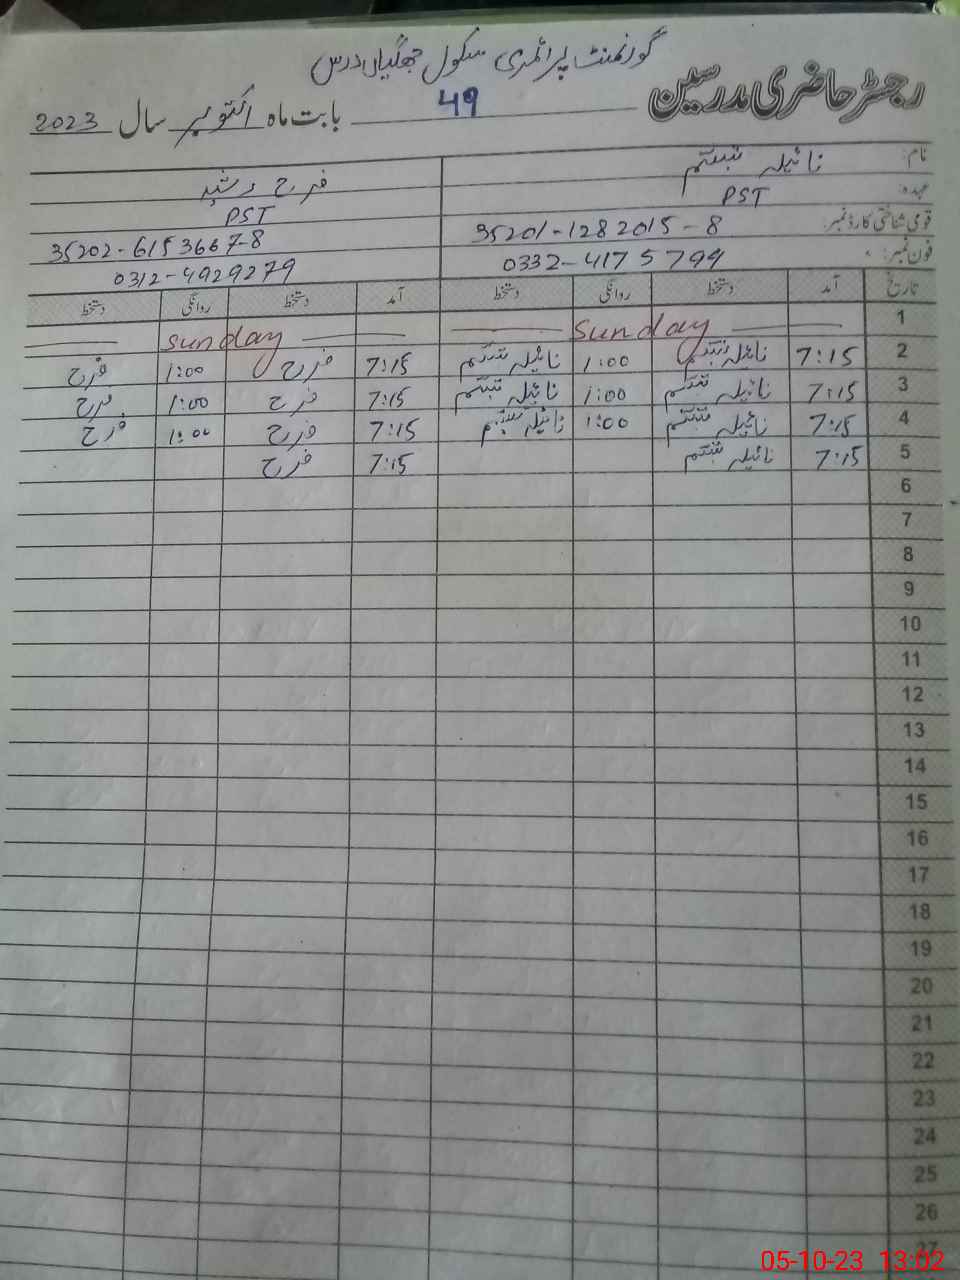 گورنمنٹ پرائمری سکول جھگیاں درس
رجسٹر حاضری مدرسین 49 بابت ماہ اکتوبر سال 2023
نام: نائیلہ تبسم فرح رشید
عہدہ: PST PST
قومی شناختی کارڈ نمبر: 35201-1282015-8 35202-6153667-8
فون نمبر: 0332-4175799 0312-4929279
تاریخ آمد دستخط روانگی دستخط آمد دستخط روانگی دستخط
1 Sunday Sunday
2 7:15 نائیلہ تبسم 1:00 نائیلہ تبسم 7:15 فرح 1:00 فرح
3 7:15 نائیلہ تبسم 1:00 نائیلہ تبسم 7:15 فرح 1:00 فرح
4 7:15 نائیلہ تبسم 1:00 نائیلہ تبسم 7:15 فرح 1:00 فرح
5 7:15 نائیلہ تبسم 7:15 فرح
6
7
8
9
10
11
12
13
14
15
16
17
18
19
20
21
22
23
24
25
26
27
05-10-23 13:02